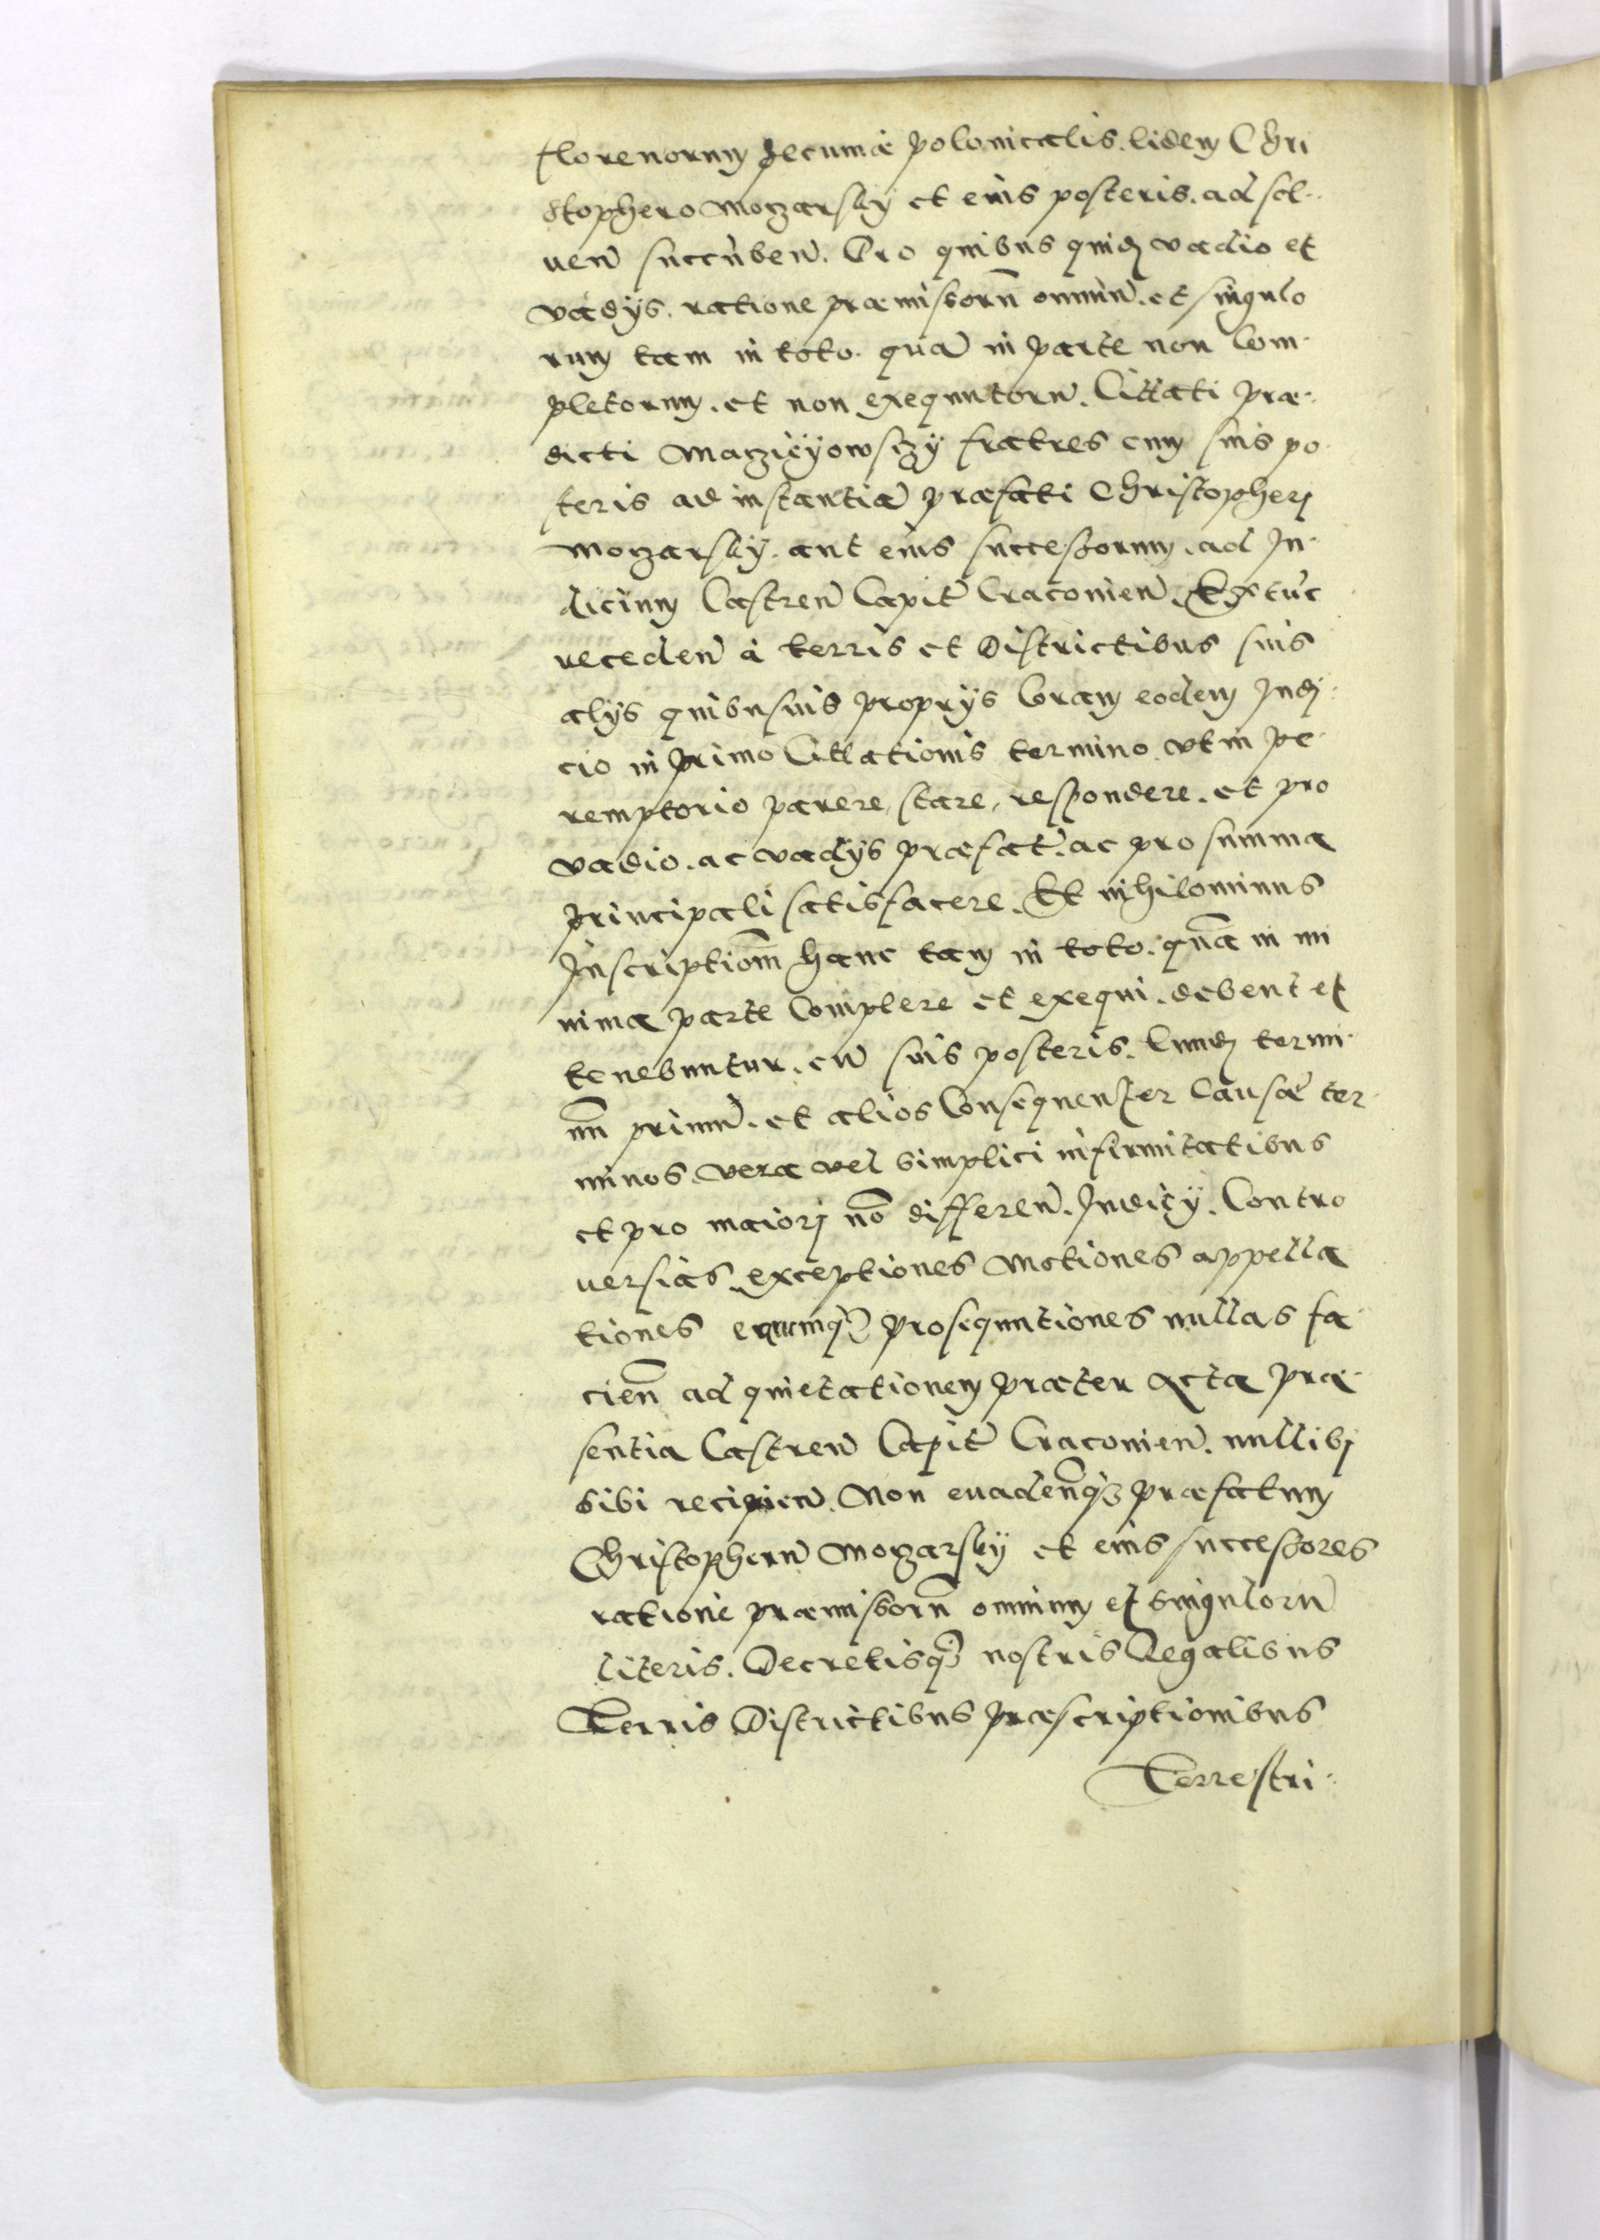 florenorum pecuniæ polonicalis. eidem Chri
stophero Mogarsky et eius posteris. ad sol-
uen̄ succūben̄. Pro quibus quidē vadio et
vadÿs. ratione præmissorū omniū. et singulo
rum tam in toto. quā in parte non Com-
pletorum. et non exequutorū. Cittati præ-
dicti Maczieÿowsczÿ fratres cum suis po
steris ad instantiā præfati Christopheri
Mogarskÿ. aut eius successorum. ad Ju-
dicium Castren̄ Capit̄ Cracouien̄. Ex tūc
receden̄ à terris et Districtibus suis
alÿs quibusuis proprÿs Coram eodem Judi-
cio in primo Cittationis termino. vt in pe-
remptorio parere, stare, respondere. et pro
vadio. ac vadÿs præfat̄. ac pro summa
principali satisfacere. Et nihilominus
Inscriptiom̄ hanc tam in toto. quā in mi
nima parte Complere et exequi. debent et
tenebuntur. cū suis posteris. Eundē termi-
nū primū. et alios Consequenter Causæ ter-
minos. vera vel simplici infirmitatibus
et pro maiori nō differen̄. Judicÿ. Contro
uersias exceptiones Motiones appella
tiones earumq̄ prosequutiones nullas fa-
cien̄ ad quietationem præter Acta præ-
sentia Castren̄ Capit̄ Cracouien̄. nullibi
sibi recipien̄. Non euaden̄qȝ præfatum
Christopherū Mogarskÿ et eius successores
ratione præmissorū omnium et singulorū
literis. Decretisq̄ nostris Regalibus
Terris Districtibus præscriptionibus
Terrestri-